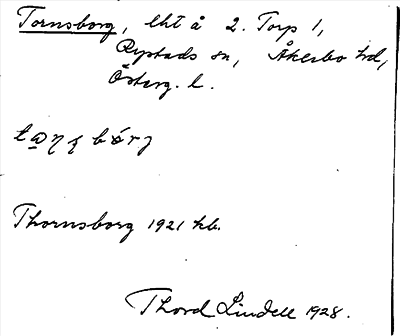 Tornsborg, lht å 2. Torp 1,
Rystads sn, Åkerbo hd,
Österg. l.
Thornsborg 1921 hb.
Thord Lindell 1928.